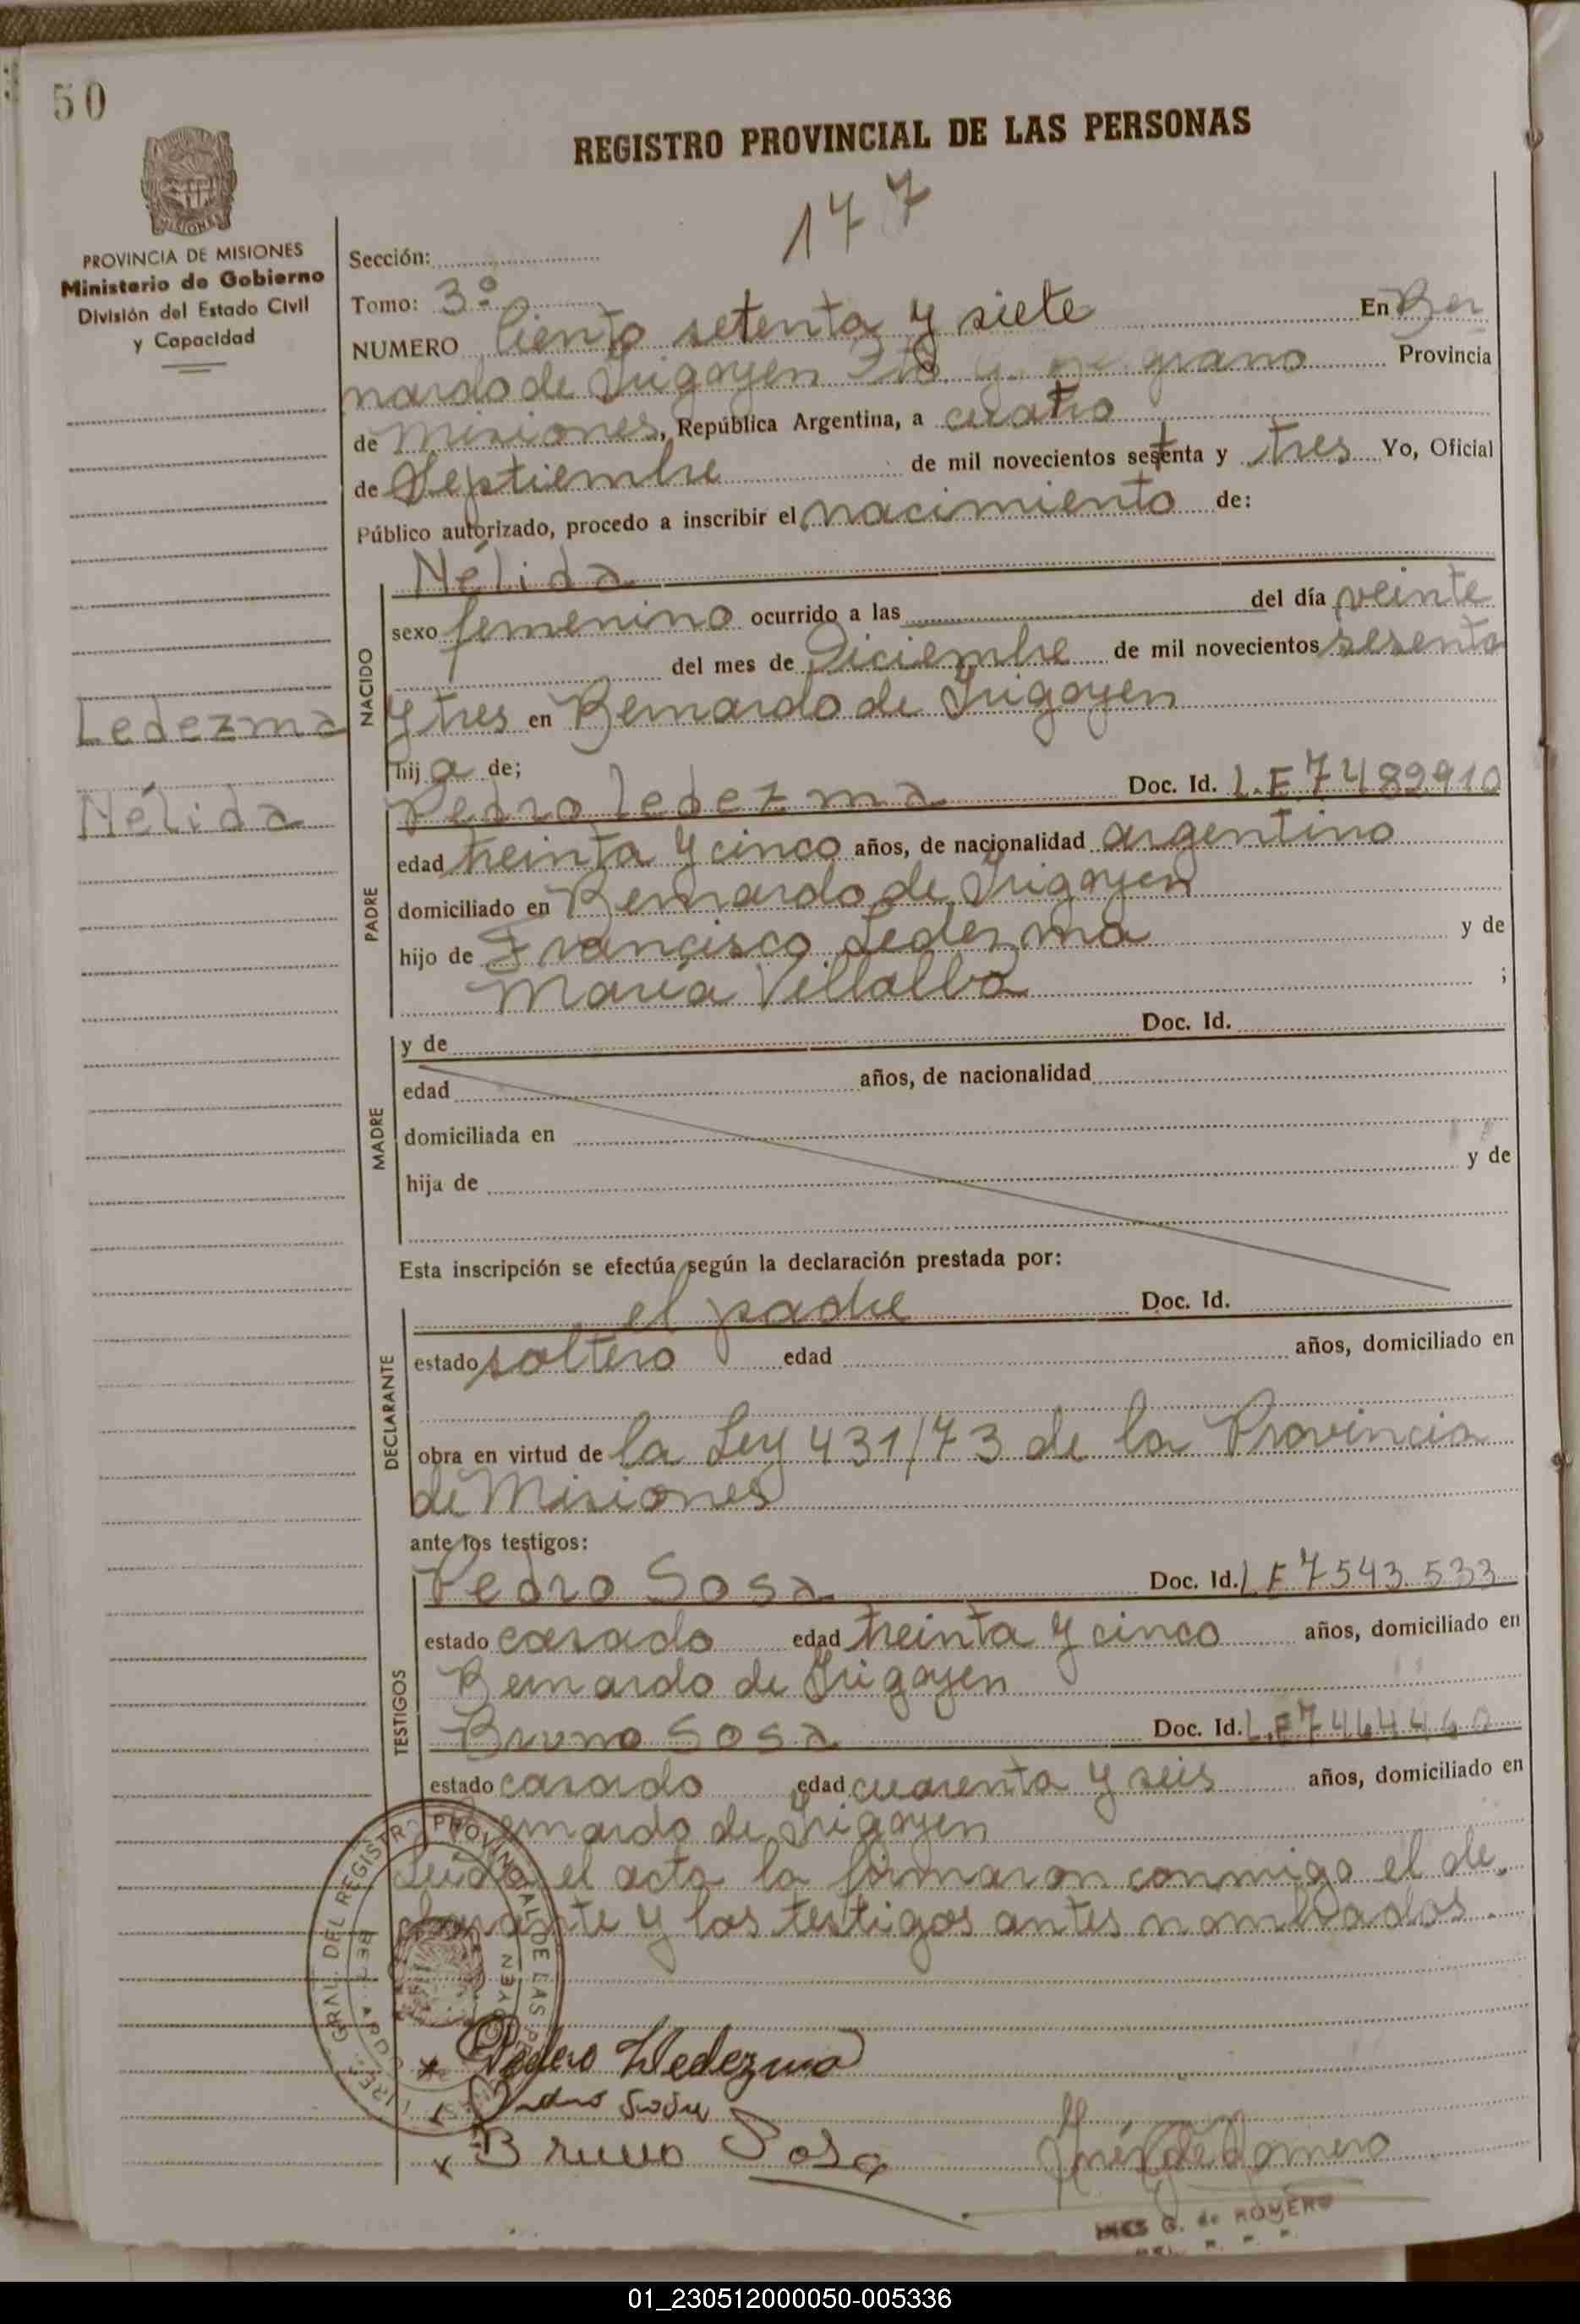 50
REGISTRO PROVINCIAL DE LAS PERSONAS
177
MISIONES
PROVINCIA DE MISIONES
Ministerio de Gobierno
División del Estado Civil
y Capacidad
Sección:
Tomo: 3º
NUMERO Ciento setenta y siete En Ber
nardo de Irigoyen Dto. G. Belgrano Provincia
de Misiones, República Argentina, a cuatro
de Septiembre de mil novecientos setenta y tres Yo, Oficial
Público autorizado, procedo a inscribir el nacimiento de:
NACIDO
Nélida
sexo femenino ocurrido a las del día veinte
del mes de Diciembre de mil novecientos sesenta
y tres en Bernardo de Irigoyen
hija de;
Ledezma
Nélida
PADRE
Pedro Ledezma Doc. Id. L.E 7489910
edad treinta y cinco años, de nacionalidad argentino
domiciliado en Bernardo de Irigoyen
hijo de Francisco Ledezma y de
María Villalba ;
MADRE
y de Doc. Id.
edad años, de nacionalidad
domiciliada en
hija de y de
Esta inscripción se efectúa según la declaración prestada por:
DECLARANTE
el padre Doc. Id.
estado soltero edad años, domiciliado en
obra en virtud de la Ley 431/73 de la Provincia
de Misiones
ante los testigos:
TESTIGOS
Pedro Sosa Doc. Id. L E 7543.533
estado casado edad treinta y cinco años, domiciliado en
Bernardo de Irigoyen
Bruno Sosa Doc. Id. L.E 7464460
estado casado edad cuarenta y seis años, domiciliado en
Bernardo de Irigoyen
Leida el acta la firmaron conmigo el de
clarante y los testigos antes nombrados.
GRAL. DEL REGISTRO PROVINCIAL DE LAS
Pedro Ledezma
Bruno Sosa
Inés G de Romero
INES G. de ROMERO
01_230512000050-005336